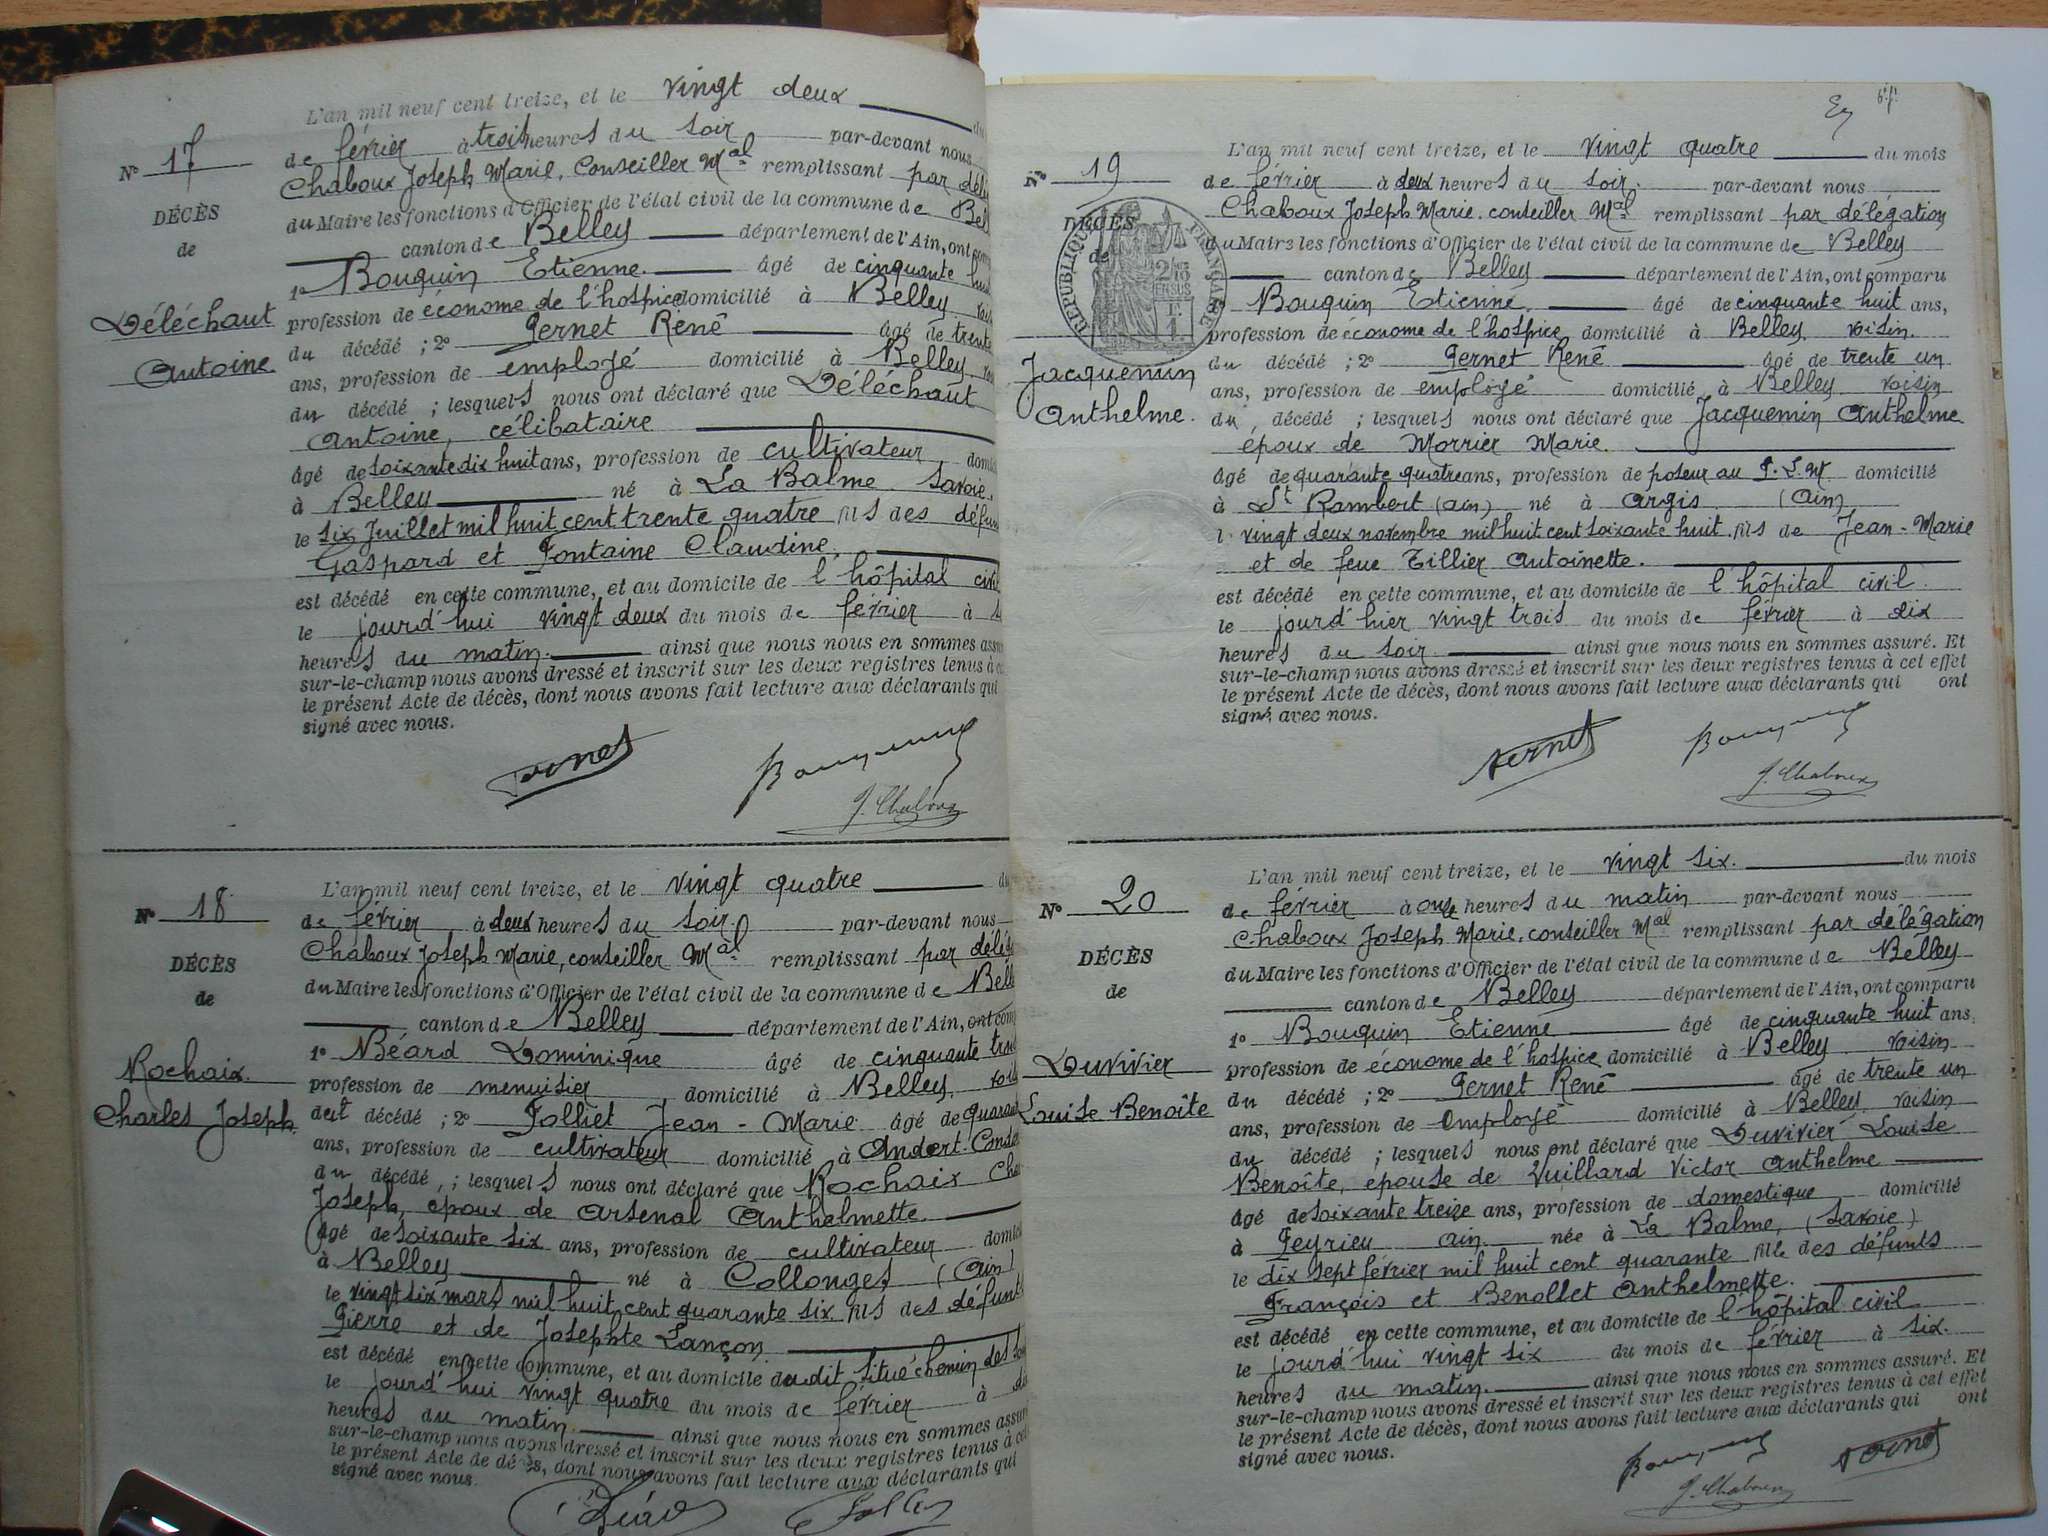 L'an mil neuf cent treize, et le vingt deux du
Nº 17
de février à trois heures du soir par-devant nous
Chaboux Joseph Marie, Conseiller Mal remplissant par délé
DÉCÈS
de
du Maire les fonctions d'Officier de l'état civil de la commune de Bel
canton de Belley département de l'Ain, ont com
1º Bouquin Etienne. âgé de cinquante hui
Déléchaut
Antoine.
profession de économe de l'hospice domicilié à Belley voi
du décédé ; 2º Pernet René âgé de trente
ans, profession de employé domicilié à Belley voi
du décédé ; lesquels nous ont déclaré que Déléchaut
Antoine, célibataire
âgé de soixante dix huit ans, profession de cultivateur domic
à Belley né à La Balme Savoie.
le six Juillet mil huit cent trente quatre fils des défun
Gaspard et Fontaine Claudine.
est décédé en cette commune, et au domicile de l'hôpital civil
le jourd'hui vingt deux du mois de février à
heures du matin. ainsi que nous nous en sommes assu
sur-le-champ nous avons dressé et inscrit sur les deux registres tenus à ce
le présent Acte de décès, dont nous avons fait lecture aux déclarants qui
signé avec nous.
Pernet
Bouquin
J. Chaboux
L'an mil neuf cent treize, et le vingt quatre du
Nº 18
DÉCÈS
de
Rochaix
Charles Joseph.
de février à deux heures du soir. par-devant nous
Chaboux Joseph Marie, conseiller Mal remplissant par délé
du Maire les fonctions d'Officier de l'état civil de la commune de Bell
canton de Belley département de l'Ain, ont comp
1º Béard Dominique âgé de cinquante troi
profession de menuisier domicilié à Belley, voi
dudt décédé ; 2º Folliet Jean-Marie âgé de quaran
ans, profession de cultivateur domicilié à Andert-Conde
du décédé, ; lesquels nous ont déclaré que Rochaix Cha
Joseph, époux de Arsenal Anthelmette.
âgé de soixante six ans, profession de cultivateur domic
à Belley né à Collonges (Ain)
le vingt six mars mil huit cent quarante six. fils des défunts
Pierre et de Josephte Lançon.
est décédé en cette commune, et au domicile dudit situé chemin des
le jourd'hui vingt quatre du mois de février à
heures du matin. ainsi que nous nous en sommes assur
sur-le-champ nous avons dressé et inscrit sur les deux registres tenus à cet
le présent Acte de décès, dont nous avons fait lecture aux déclarants qui
signé avec nous.
L'an mil neuf cent treize, et le vingt quatre du mois
Nº 19
DÉCÈS
de
RÉPUBLIQUE FRANÇAISE
Jacquemin
Anthelme.
de février à deux heures du soir. par-devant nous
Chaboux Joseph Marie. conseiller Mal remplissant par délégation
du Maire les fonctions d'Officier de l'état civil de la commune de Belley
canton de Belley département de l'Ain, ont comparu
Bouquin Etienne. âgé de cinquante huit ans,
profession de économe de l'hospice domicilié à Belley voisin.
du décédé ; 2º Pernet René âgé de trente un
ans, profession de employé domicilié à Belley voisin
du, décédé ; lesquels nous ont déclaré que Jacquemin Anthelme
époux de Morrier Marie.
âgé de quarante quatre ans, profession de poseur au P. L. M. domicilié
à St Rambert (ain) né à Argis (Ain)
l vingt deux novembre mil huit cent soixante huit. fils de Jean-Marie
et de feue Tillier Antoinette.
est décédé en cette commune, et au domicile de l'hôpital civil.
le jourd'hier vingt trois du mois de février à dix
heures du soir. ainsi que nous nous en sommes assuré. Et
sur-le-champ nous avons dressé et inscrit sur les deux registres tenus à cet effet
le présent Acte de décès, dont nous avons fait lecture aux déclarants qui ont
signé avec nous.
Pernet
Bouquin
J. Chaboux
L'an mil neuf cent treize, et le vingt six. du mois
Nº 20
DÉCÈS
de
Duvivier
Louise Benoîte
de février à onze heures du matin par-devant nous
Chaboux Joseph Marie. conseiller Mal remplissant par délégation
du Maire les fonctions d'Officier de l'état civil de la commune de Belley
canton de Belley département de l'Ain, ont comparu
1º Bouquin Etienne âgé de cinquante huit ans,
profession de économe de l'hospice domicilié à Belley voisin
du décédé ; 2º Pernet René âgé de trente un
ans, profession de Employé domicilié à Belley voisin
du décédé ; lesquels nous ont déclaré que Duvivier Louise
Benoîte, épouse de Vuillard Victor Anthelme
âgé de soixante treize ans, profession de domestique domicilié
à Peyrieu ain. née à La Balme, (Savoie)
le dix sept février mil huit cent quarante fille des défunts
François et Benollet Anthelmette.
est décédé en cette commune, et au domicile de l'hôpital civil
le jourd'hui vingt six du mois de février à six.
heures du matin. ainsi que nous nous en sommes assuré. Et
sur-le-champ nous avons dressé et inscrit sur les deux registres tenus à cet effet
le présent Acte de décès, dont nous avons fait lecture aux déclarants qui ont
signé avec nous.
Bouquin
Pernet
J. Chaboux